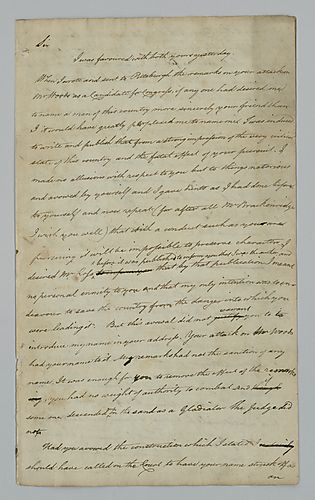 Sir
I was favoured with both yours yesterday.
When I wrote and sent to Pittsburgh the remarks on your attack on
Mr Woods as a Candidate for Congress, if any one had desired me
to name a man of this country more sincerely your friend than
I it would have greatly puzzled me to name one. I was induced
to write and publish that from a strong impression of the very
state of this country and the fatal effect of your pursuit. I
made no allusion with respect to you but to things notorious
and avowed by yourself and I gave hints as I had done before
to yourself and now repeat (for after all Mr Brackenridge
I wish you well) that with a conduct such as your
it will be impossible to preserve character. I
before it was published to inform you that I was the author and
desired Mr Ross that by that publication I meant
no personal enmity to you and that my only intention was to en-
deavour to save the country from the danger into which you
were leading it. But this avowal did not warrant you to
introduce my name in your address. Your attack on Mr Woods
had your name to it. My remarks had not the sanction of any
name. It was enough for you to remove the effect of the remarks
you had no weight of authority to combat and
some one descended on the sand as a Gladiator The Judge did
not.
Had you avowed the construction which I stated
should have called on the Court to have your name struck off a
an